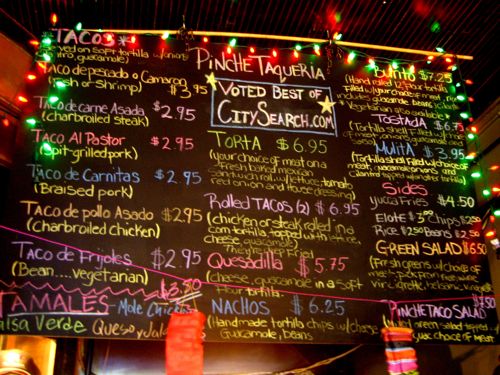 *TACOS*
served on soft tortilla w/
guacamole)
Taco de pescado o Camaron
fish or shrimp) $3.95
Taco de carne Asada $2.95
(charbroiled steak)
Taco Al Pastor $2.95
(spit-grilled pork)
Taco de Carnitas $2.95
(Braised pork)
Taco de pollo Asado $2.95
(charbroiled chicken)
Taco de Frijoles $2.95
(Bean....vegetarian)
TAMALES $3.50
Mole Chicken
Salsa Verde Queso y
PINCHE TAQUERIA
VOTED BEST OF
CITYSEARCH.COM
TORTA $6.95
(your choice of meat on a
fresh baked mexican
red onion and house dressing)
Rolled TACOS (2) $6.95
(chicken or steak rolled in a
corn tortilla, topped with
cheese, guacamole)
Fries
Quesadilla $5.75
(cheese, guacamole in a soft
flour tortilla
NACHOS $6.25
(Handmade tortilla chips w/ cheese
guacamole, beans
Burrito $7.25
(Hand rolled 12" flour tortilla
Filled w/ your choice of meat,
includes guacamole, beans
Vegetarian also available)
TOSTADA $6.75
(Tortilla shell filled w/
MULITA $3.95
(Tortilla shell filled w/ choice
of meat,
Sides
yucca Fries $4.50
Elote $3.00 Chips $2.50
Rice $2.50 Beans $2.50
GREEN SALAD $6.50
(Fresh greens w/ choice of
PINCHE TACO SALAD
green salad topped
choice of MEAT